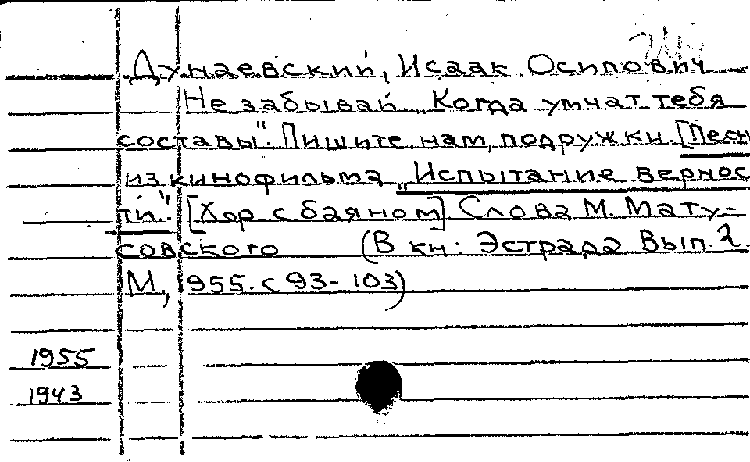 Дунаевский, Исаак Осипович
Не забывай „Когда умчат тебя
составы". Пишите нам, подружки. [Песн
из кинофильма „Испытание вернос
ти." [Хор с баяном] Слова М. Мату-
совского (В кн: Эстрада Вып. 2.
М, 1955. с 93-103)
1955
1943